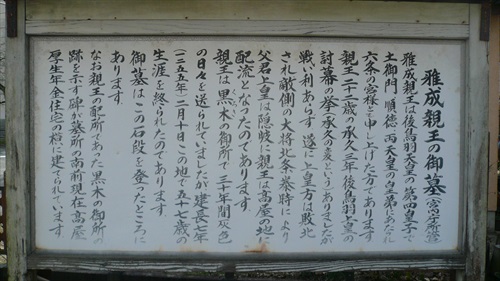 雅成親王の御墓 宮内庁所管
雅成親王は後鳥羽天皇の第四皇子で
土御門 順徳 両天皇の皇弟にあたられ
六条の宮様と申し上げた方であります
親王二十二歳の承久三年後鳥羽上皇の
討幕の挙（承久の変という）ありましたが
戦い利あらず 遂に上皇方は敗北
され敵側の大将北条泰時により
父君上皇は隠岐に親王は高屋の地に
配流となったのであります
親王は黒木の御所で三十年間灰色
の日々を送られていましたが建長七年
（一二五五年）二月十日この地で五十七歳の
生涯を終られたのであります
御墓はこの石段を登ったところに
あります
なお親王の配所であった黒木の御所の
跡を示す碑が墓所の南前現在高屋
厚生年金住宅の横に建てられています